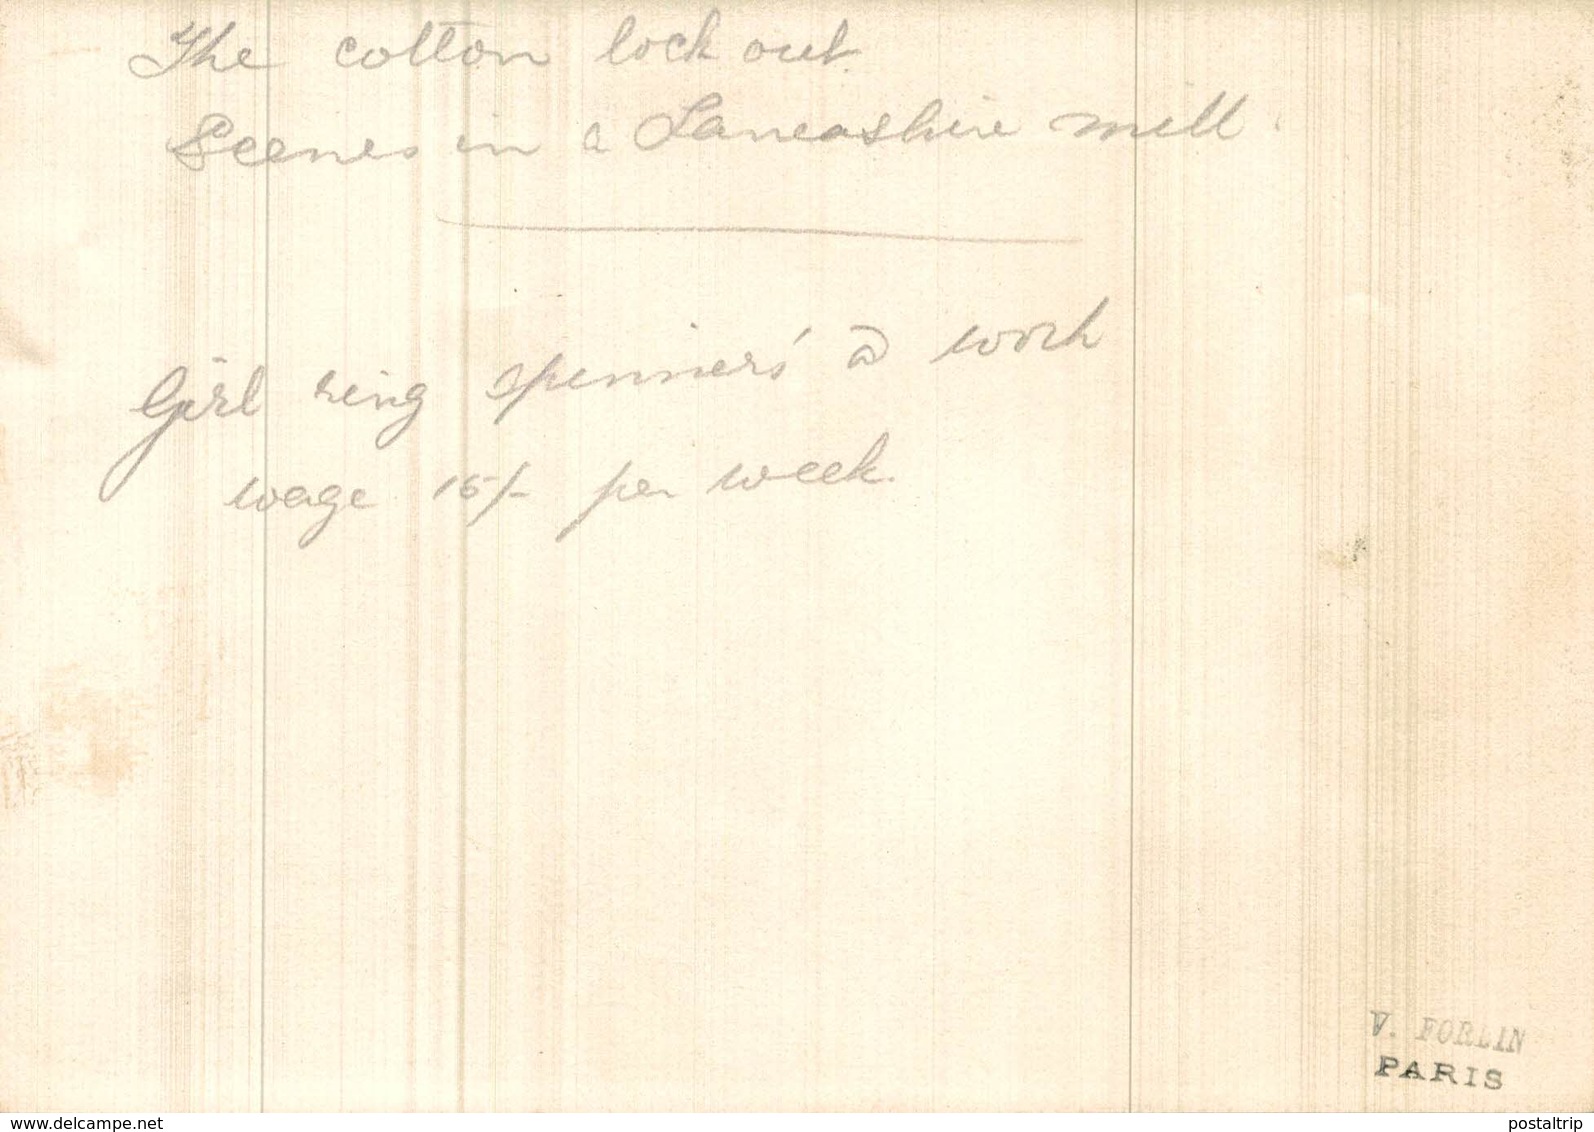 The cotton lock out.
Scenes in a Lancashire mill.
Girl ring spinners' a work
wage 15/- per week.
V. FORLIN
PARIS
www.delcampe.net
postaltrip